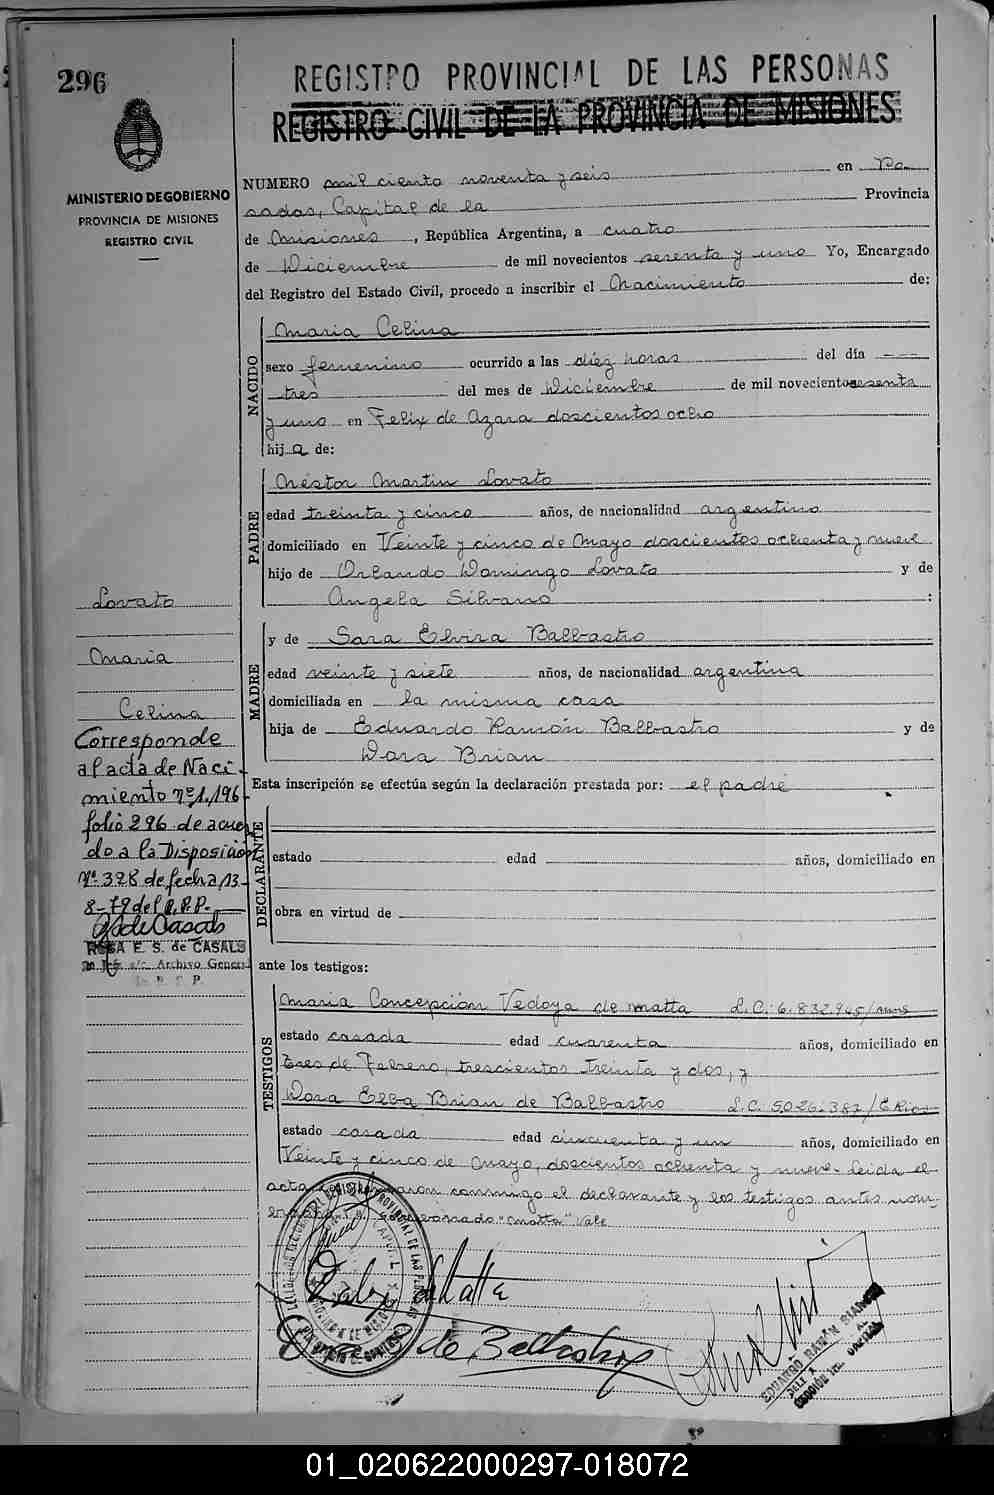 296
REGISTRO PROVINCIAL DE LAS PERSONAS
REGISTRO CIVIL DE LA PROVINCIA DE MISIONES
MINISTERIO DE GOBIERNO
PROVINCIA DE MISIONES
REGISTRO CIVIL
NUMERO mil ciento noventa y seis en Po
sadas, Capital de la Provincia
de Misiones, República Argentina, a cuatro
de Diciembre de mil novecientos sesenta y uno Yo, Encargado
del Registro del Estado Civil, procedo a inscribir el Nacimiento de:
NACIDO
Maria Celina
sexo femenino ocurrido a las diez horas del día ---
tres del mes de Diciembre de mil novecientos sesenta
y uno en Felix de Azara doscientos ocho
hija de:
PADRE
Néstor Martin Lovato
edad treinta y cinco años, de nacionalidad argentino
domiciliado en Veinte y cinco de Mayo doscientos ochenta y nueve
hijo de Orlando Domingo Lovato y de
Angela Silvano :
MADRE
y de Sara Elvira Balbastro
edad veinte y siete años, de nacionalidad argentina
domiciliada en la misma casa
hija de Eduardo Ramón Balbastro y de
Dora Brian
Esta inscripción se efectúa según la declaración prestada por: el padre
DECLARANTE
estado edad años, domiciliado en
obra en virtud de
ante los testigos:
TESTIGOS
Maria Concepción Vedoya de Matta L.C. 6.832.945/
estado casada edad cuarenta años, domiciliado en
tres de Febrero, trescientos treinta y dos, y
Dora Elba Brian de Balbastro L.C. 5.026.387/E Rios
estado casada edad cincuenta y un años, domiciliado en
Veinte y cinco de Mayo, doscientos ochenta y nueve. Leida el
acta conmigo el declarante y los testigos antes nom-
"Matta" Vale
Lovato
Maria
Celina
Corresponde
al acta de Naci-
miento nº 1.196
folio 296 de acuer
do a la Disposición
Nº 328 de fecha 13-
8-79 del R.P.P.
ROSA E. S. de CASALS
Archivo General
R. P. P.
de Matta
de Balbastro
EDUARDO RAMÓN BIANCHI
01_020622000297-018072